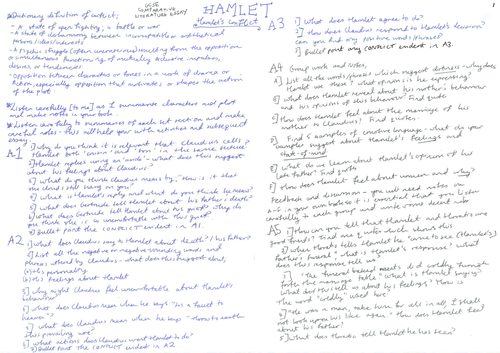 HAMLET
GCSE
COMPARATIVE
LITERATURE ESSAY
Hamlet's Conflict
1
Dictionary definition of conflict:
- A state of open fighting; a battle or war
- A state of disharmony between incompatible or antithetical
persons/ideas/interests
- A psychic struggle (often unconscious) resulting from the opposition
or simultaneous functioning of mutually exclusive impulses,
desires, or tendencies
- Opposition between characters or forces in a work of drama or
fiction, especially opposition that motivates or shapes the action
of the plot
Listen carefully [to me] as I summarise characters and plot
and make notes in your books.
Listen carefully to summaries of each set section and make
careful notes - this will help you with activities and subsequent
essay.
A1
1] Why do you think it is relevant that Claudius calls
Hamlet both 'cousin' and 'son' in the same sentence
2] Hamlet replies using an 'aside' - what does this suggest
about his feelings about Claudius?
3] What do you think Claudius means by, "How is it that
the clouds still hang on you?"
4] What is Hamlet's reply and what do you think he means?
5] What does Gertrude tell Hamlet about his father's death?
6] What does Gertrude tell Hamlet about his grief? Why do
you think she is so uncomfortable with this grief?
7] Bullet point the CONFLICT evident in A1.
A2
1] What does Claudius say to Hamlet about death? his father's
2] List all the negative or negative sounding words and
phrases uttered by Claudius - what does this suggest about,
a) his personality
b) his feelings about Hamlet
3] Why might Claudius feel uncomfortable about Hamlet's
behaviour?
4] What does Claudius mean when he says "'tis a fault to
heaven"?
5] What does Claudius mean when he says "throw to earth
this prevailing woe"?
6] What actions does Claudius want Hamlet to do?
7] Bullet point the CONFLICT evident in A2
A3
1] What does Hamlet agree to do?
2] How does Claudius respond to Hamlet's decision?
can you find any positive words/phrases?
3] Bullet point any conflict evident in A3.
A4
Group work and notes.
a] List all the words/phrases which suggest darkness - why does
Hamlet use these? What opinion is he expressing?
b] What does Hamlet reveal about his mother's behaviour
and his opinions of this behaviour? Find quotes.
c] How does Hamlet feel about the marriage of his
mother to Claudius? Find quotes.
d] Find 5 examples of emotive language - what do your
examples suggest about Hamlet's feelings and
state of mind?
e] What do we learn about Hamlet's opinion of his
late father? Find quotes
f] How does Hamlet feel about women and why?
Feedback and discussion - you will need notes on
a-f in your own books so it is essential that you listen
carefully to each group and write more detail into
A5
1] How can you tell that Hamlet and Horatio are
good friends? Find one quote which shows this
2] When Horatio tells Hamlet he "came to see [Hamlet's]
father's funeral", what is Hamlet's response? What
does this response tell us?
3] "The funeral baked meats did coldly furnish
forth the marriage table" what is Hamlet saying?
What does this tell us about his feelings? How is
the word "coldly" used here?
4] "He was a man, take him for all in all, I shall
not look upon his like again" How does Hamlet feel
about his father?
5] What does Horatio tell Hamlet he has seen?